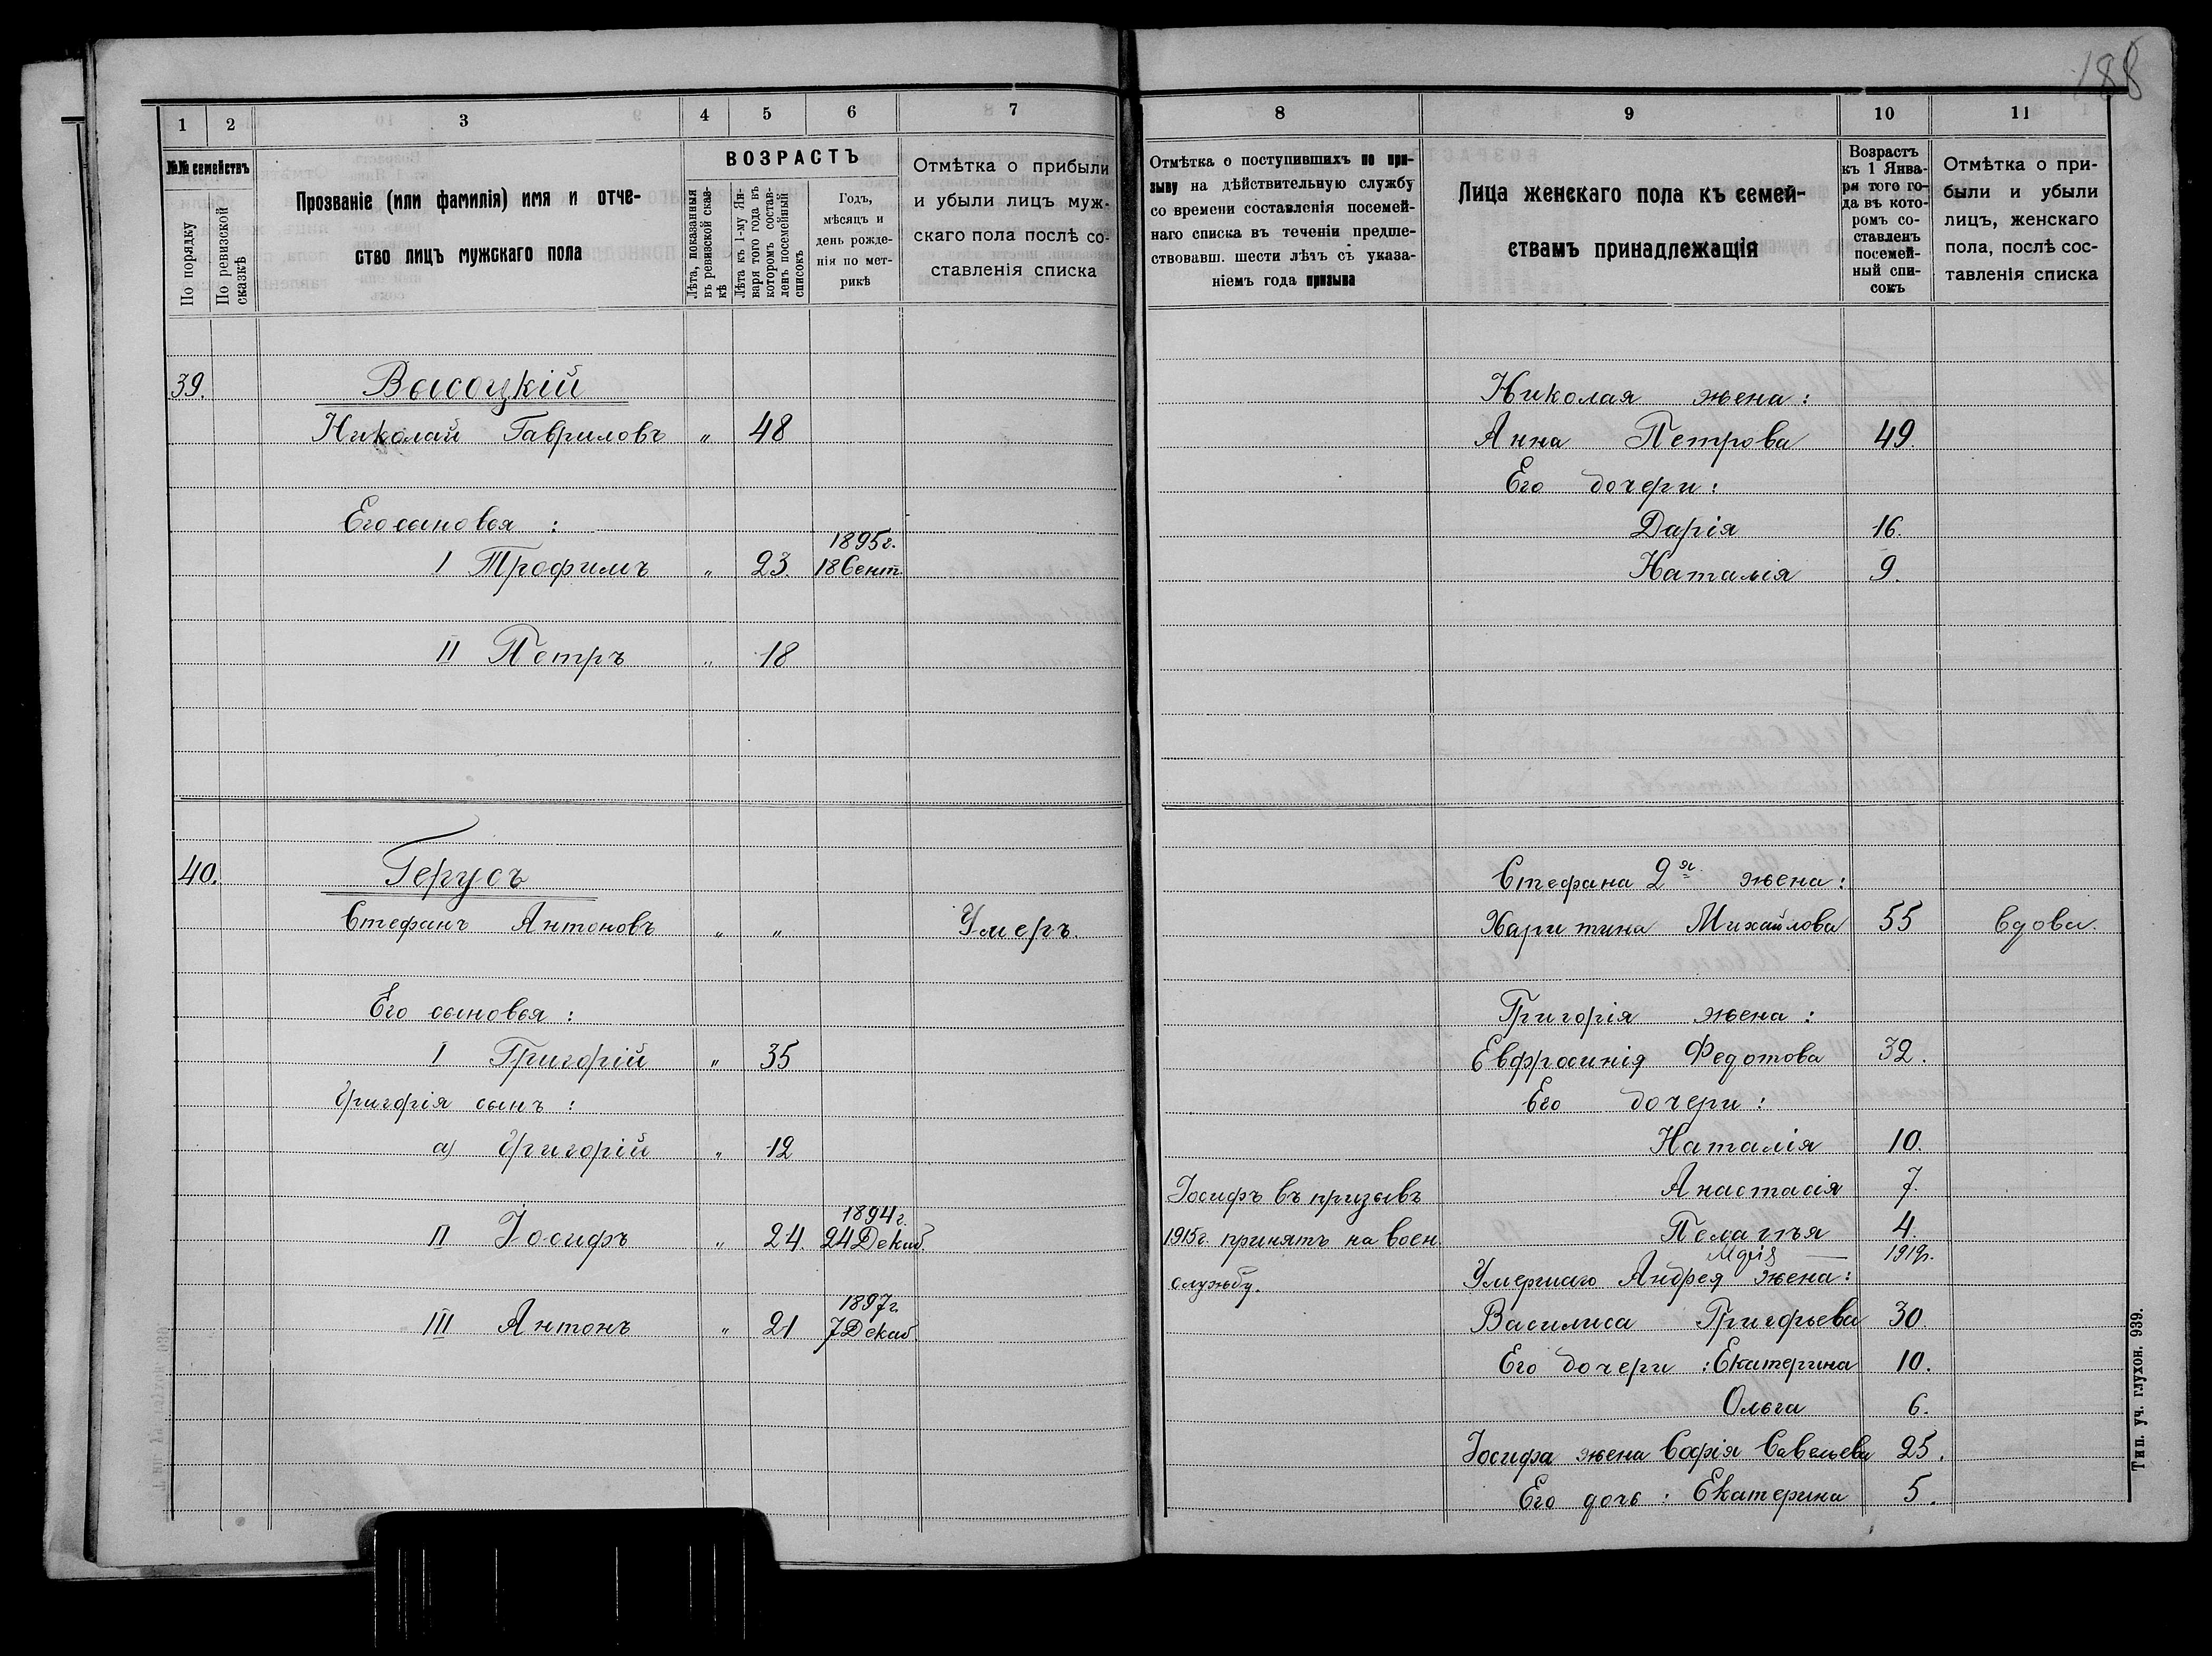 188
1 2 3 4 5 6 7
№№ семействъ
По порядку
По ревизской сказкѣ
Прозваніе (или фамилія) имя и отче-
ство лицъ мужскаго пола
ВОЗРАСТЪ
Лѣта, показанныя
въ ревизской сказ-
кѣ
Лѣта къ 1-му Ян-
варя того года въ
которомъ состав-
ленъ посемейный
списокъ
Годъ,
мѣсяцъ и
день рожде-
нія по мет-
рикѣ
Отмѣтка о прибыли
и убыли лицъ муж-
скаго пола послѣ со-
ставленія списка
39.
Высоцкій
Николай Гавриловъ „ 48
Его сыновья :
1895г.
I Трофимъ „ 23. 18 Сент.
II Петръ „ 18
40.
Герусъ
Стефанъ Антоновъ „ „ Умеръ.
Его сыновья :
I Григорій „ 35
Григорія сынъ :
а) Григорій „ 12
1894г.
II Іосифъ „ 24. 24 Декаб.
1897г.
III Антонъ „ 21 7 Декаб
8 9 10 11
Отмѣтка о поступившихъ по при-
зыву на дѣйствительную службу
со времени составленія посемей-
наго списка въ теченіи предше-
ствовавш. шести лѣтъ съ указа-
ніемъ года призыва
Лица женскаго пола къ семей-
ствамъ принадлежащія
Возрастъ
къ 1 Янва-
ря того го-
да въ кото-
ромъ со-
ставленъ
посемей-
ный спи-
сокъ
Отмѣтка о при-
были и убыли
лицъ, женскаго
пола, послѣ сос-
тавленія списка
Николая жена :
Анна Петрова 49.
Его дочери :
Дарія 16.
Наталія 9.
Стефана 2я жена :
Харитина Михайлова 55 вдова.
Григорія жена :
Евфросинія Федотова 32.
Его дочери :
Наталія 10.
Іосифъ въ призывъ Анастасія 7.
1915г. принятъ на воен. Пелагія 4.
1919г.
службу. Умершаго Андрея жена :
Василиса Григорьева 30.
Его дочери : Екатерина 10.
Ольга 6.
Іосифа жена Софія Савельева 25.
Его дочь : Екатерина 5.
Тип. уч. глухон. 939.